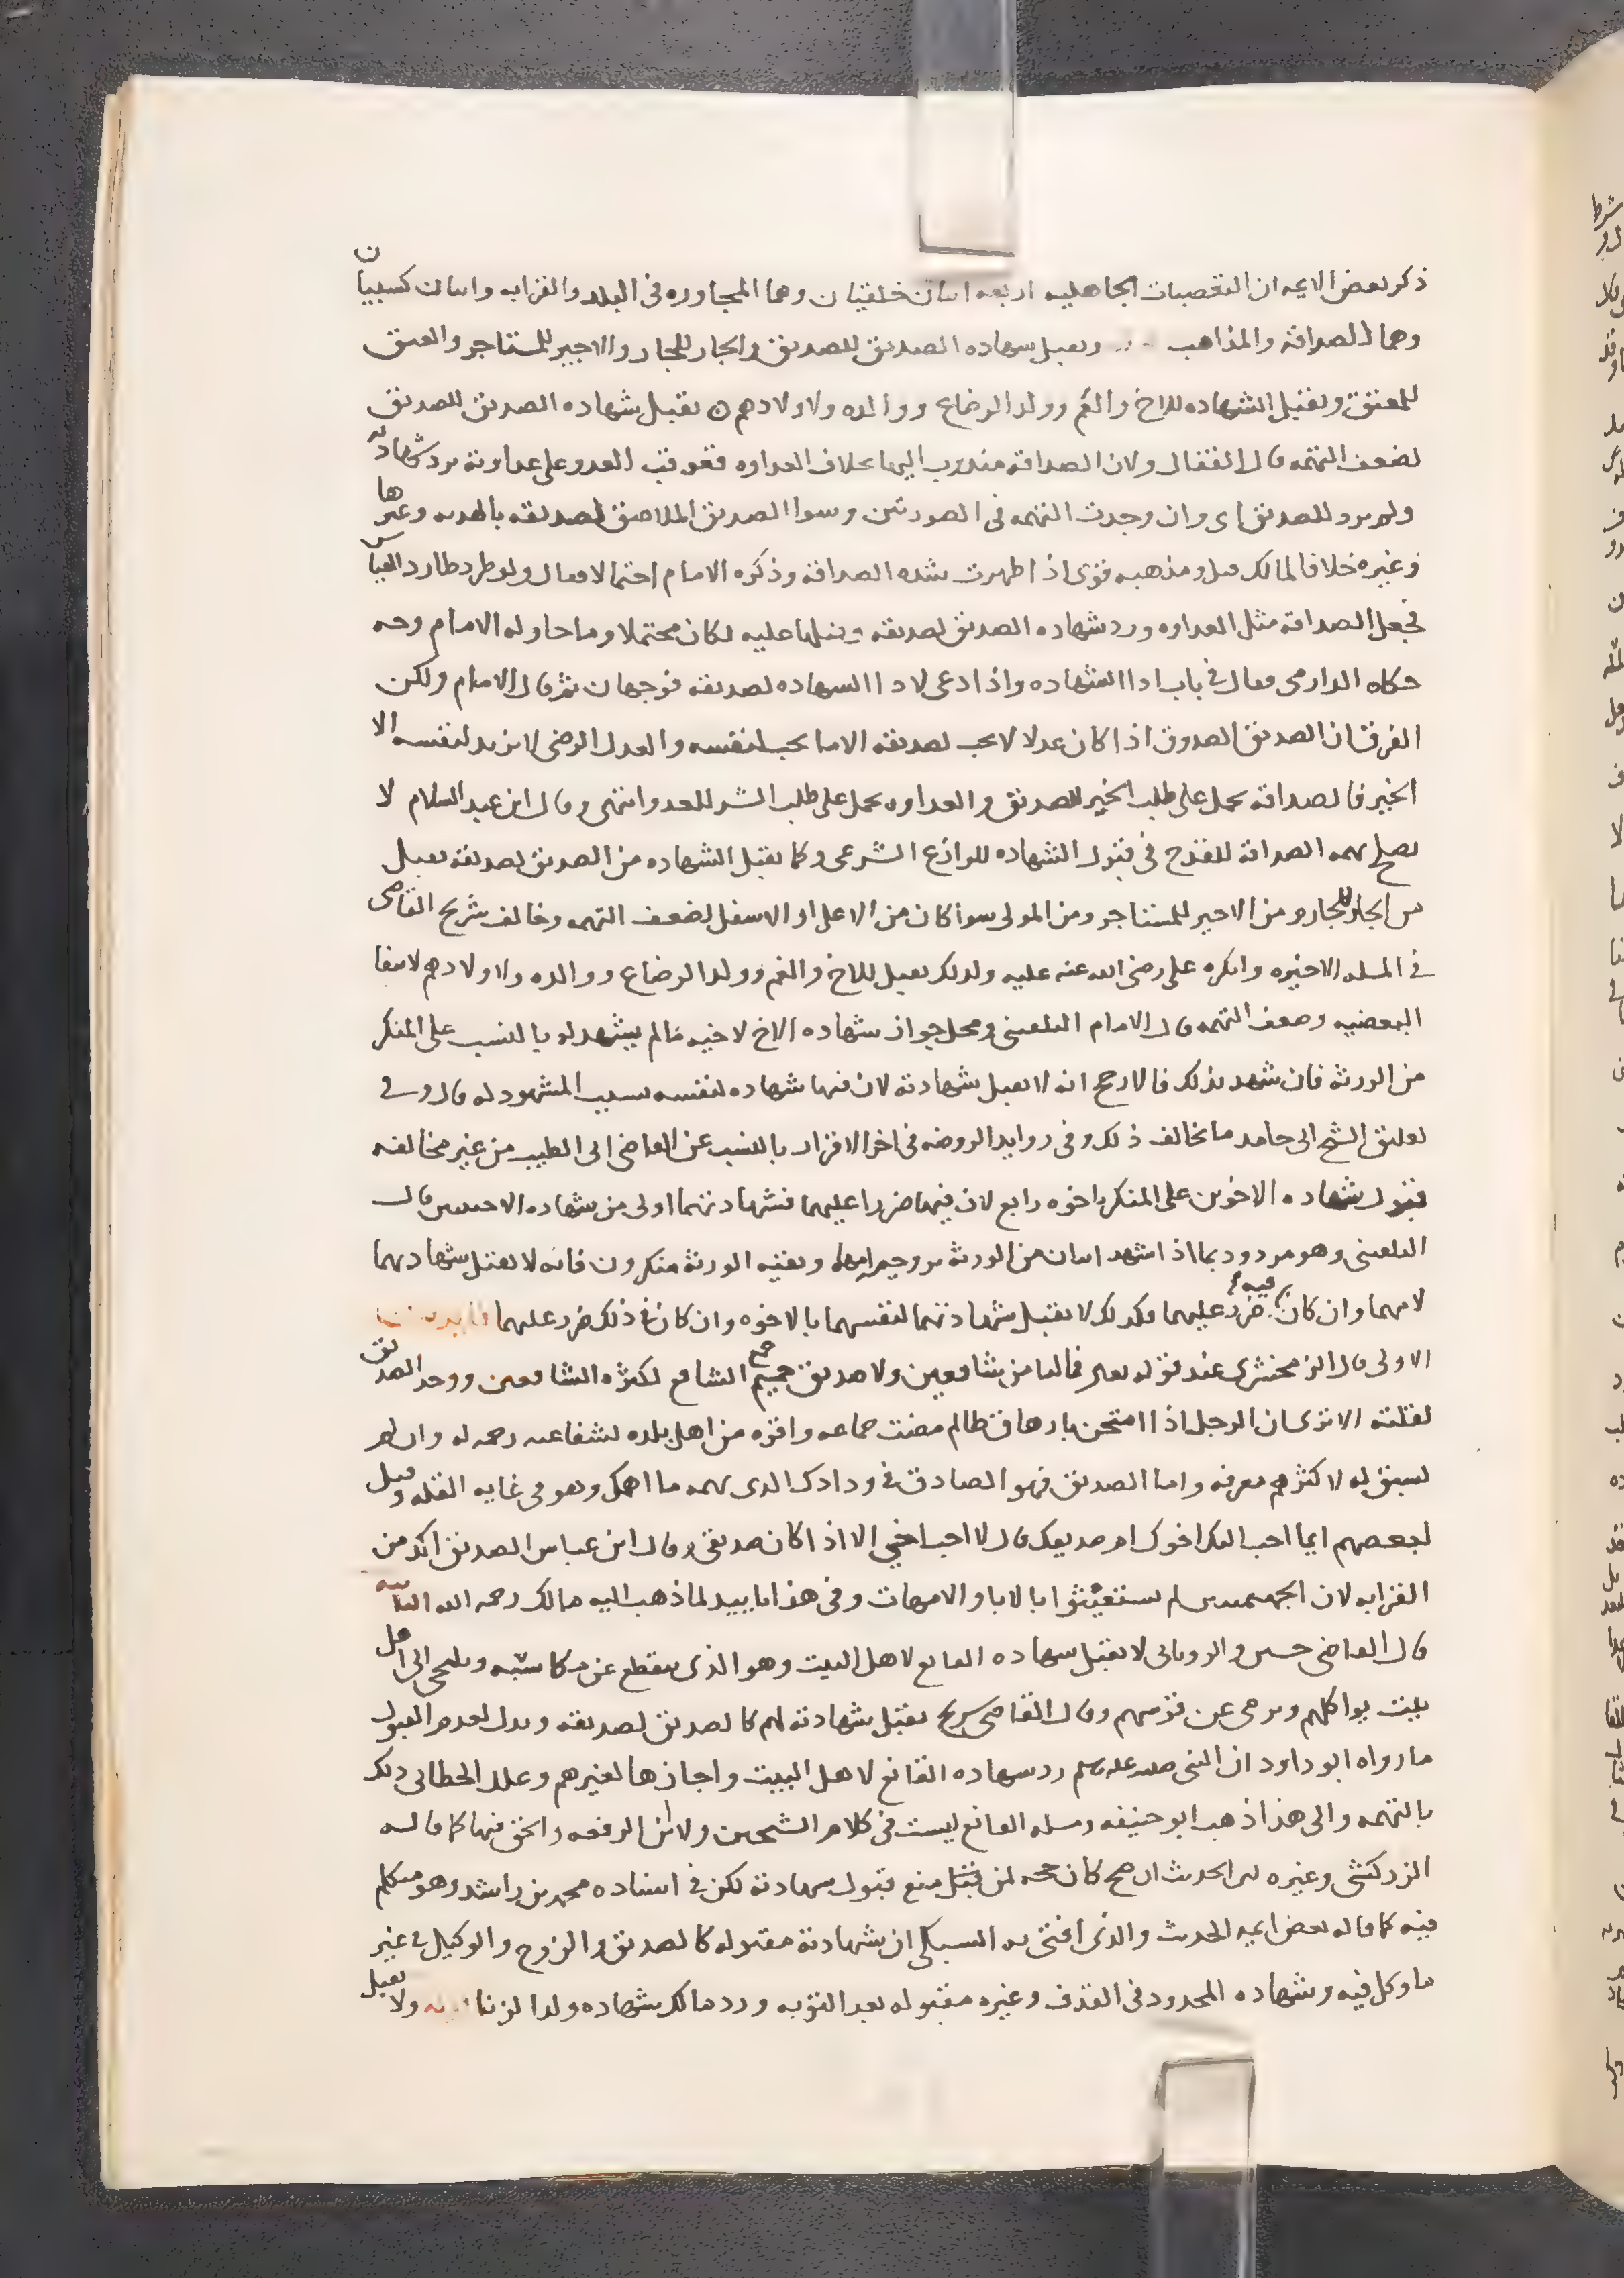 ذكر بعض الايمه ان التعصبات الجاهليه اربعه اثنان خلقيان وهما المجاوره فى البلد والقرابه واثنان كسبيان
وهما الصداقة والمذاهب وتقبل شهاده الصديق للصديق والجار للجار والاجير للمستاجر والعتيق
للمعتق وتقبل الشهاده للاخ والعم وولد الرضاع ووالده ولاولادهم تقبل شهاده الصديق للصديق
لضعف التهمه قال القفال ولان الصداقة مندوب اليها بخلاف العداوه فعوقب العدو على عداوته برد شهادته
ولم يرد للصديق اى وان وجدت التهمه فى الصورتين وسوا الصديق الملاصق لصديقه بالهديه وغيرها
وغيره خلافا لمالك قيل ومذهبه قوى اذا ظهرت شده الصداقة وذكره الامام احتمالا فقال ولو طرد طارد القياس
فجعل الصداقة مثل العداوه ورد شهاده الصديق لصديقه وقبلها عليه لكان محتملا وما حاوله الامام وجه
حكاه الدارمى فقال فى باب ادا الشهاده واذا دعى لادا الشهاده لصديقه فوجهان ثم قال الامام ولكن
الفرق ان الصديق الصدوق اذا كان عدلا لا يحب لصديقه الا ما يحب لنفسه والعدل الرضى لا يريد لنفسه الا
الخير فالصداقة يحمل على طلب الخير للصديق والعداوه يحمل على طلب الشر للعدو انتهى وقال ابن عبد السلام لا
يصلح تهمه الصداقة للقدح فى قبول الشهاده للوازع الشرعى وكما يقبل الشهاده من الصديق لصديقه يقبل
من الجار للجار ومن الاجير للمستاجر ومن المولى سوا كان من الاعلى او الاسفل لضعف التهمه وخالف شريح القاضى
فى المسله الاخيره وانكره على رضى الله عنه عليه ولذلك يقبل للاخ والعم وولد الرضاع ووالده ولاولادهم لانتفا
البعضيه وضعف التهمه قال الامام البلقينى ومحل جواز شهاده الاخ لاخيه مالم يشهد له بالنسب على المنكر
من الورثة فان شهد بذلك فالارجح انه لا يقبل شهادته لان فيها شهاده لنفسه بسبب المشهود له قال وفى
تعليق الشيخ ابى حامد ما يخالف ذلك وفى زوايد الروضه فى اخر الاقرار بالنسب عن القاضى ابى الطيب من غير مخالفه
قبول شهاده الاخوين على المنكر باخوه رابع لان فيها ضررا عليهما فشهادتهما اولى من شهاده الاجنبيين قال
البلقينى وهو مردود بما اذا شهد اثنان من الورثه بزوجيه امهما وبقيه الورثة منكرون فانه لا يقبل شهادتهما
لامهما وان كان فيه ضرر عليهما فكذلك لا يقبل شهادتهما لنفسهما بالاخوه وان كان فى ذلك ضرر عليهما
الاولى قال الزمخشرى عند قوله تعالى فمالنا من شافعين ولا صديق حميم جمع الشافع لكثره الشافعين ووحد الصديق
لقلته الا ترى ان الرجل اذا امتحن بارهاق ظالم مضت جماعه وافره من اهل بلده لشفاعته رحمه له وان لم
تسبق له لاكثرهم معرفه واما الصديق فهو الصادق فى ودادك الذى يهمه ما اهمك وهو فى غايه القله وقيل
لبعضهم ايما احب اليك اخوك ام صديقك قال لا احب اخى الا اذا كان صديقى وقال ابن عباس الصديق اكد من
القرابه لان الجهنميين لم يستغيثوا بالابا والامهات وفى هذا تاييد لما ذهب اليه مالك رحمه الله الثانيه
قال القاضى حسين والرويانى لا يقبل شهاده القانع لاهل البيت وهو الذى ينقطع عن مكاسبه ويلتجى الى اهل
بيت يواكلهم ويرمى عن قوسهم وقال القاضى شريح تقبل شهادته لهم كالصديق لصديقه ويدل لعدم القبول
ما رواه ابو داود ان النبى صلى الله عليه وسلم رد شهاده القانع لاهل البيت واجازها لغيرهم وعلل الخطابى ذلك
بالتهمه والى هذا ذهب ابو حنيفه ومسله القانع ليست فى كلام الشيخين ولا ابن الرفعه والحق فيها كما قاله
الزركشى وغيره ان الحديث ان صح كان حجه لمن قبل منع قبول شهادته لكن فى اسناده محمد بن راشد وهو متكلم
فيه كما قاله بعض ايمه الحديث والذى افتى به السبكى ان شهادته مقبوله كالصديق والزوج والوكيل فى غير
ما وكل فيه وشهاده المحدود فى القذف وغيره مقبوله بعد التوبه ورد مالك شهاده ولد الزنا ولا تقبل